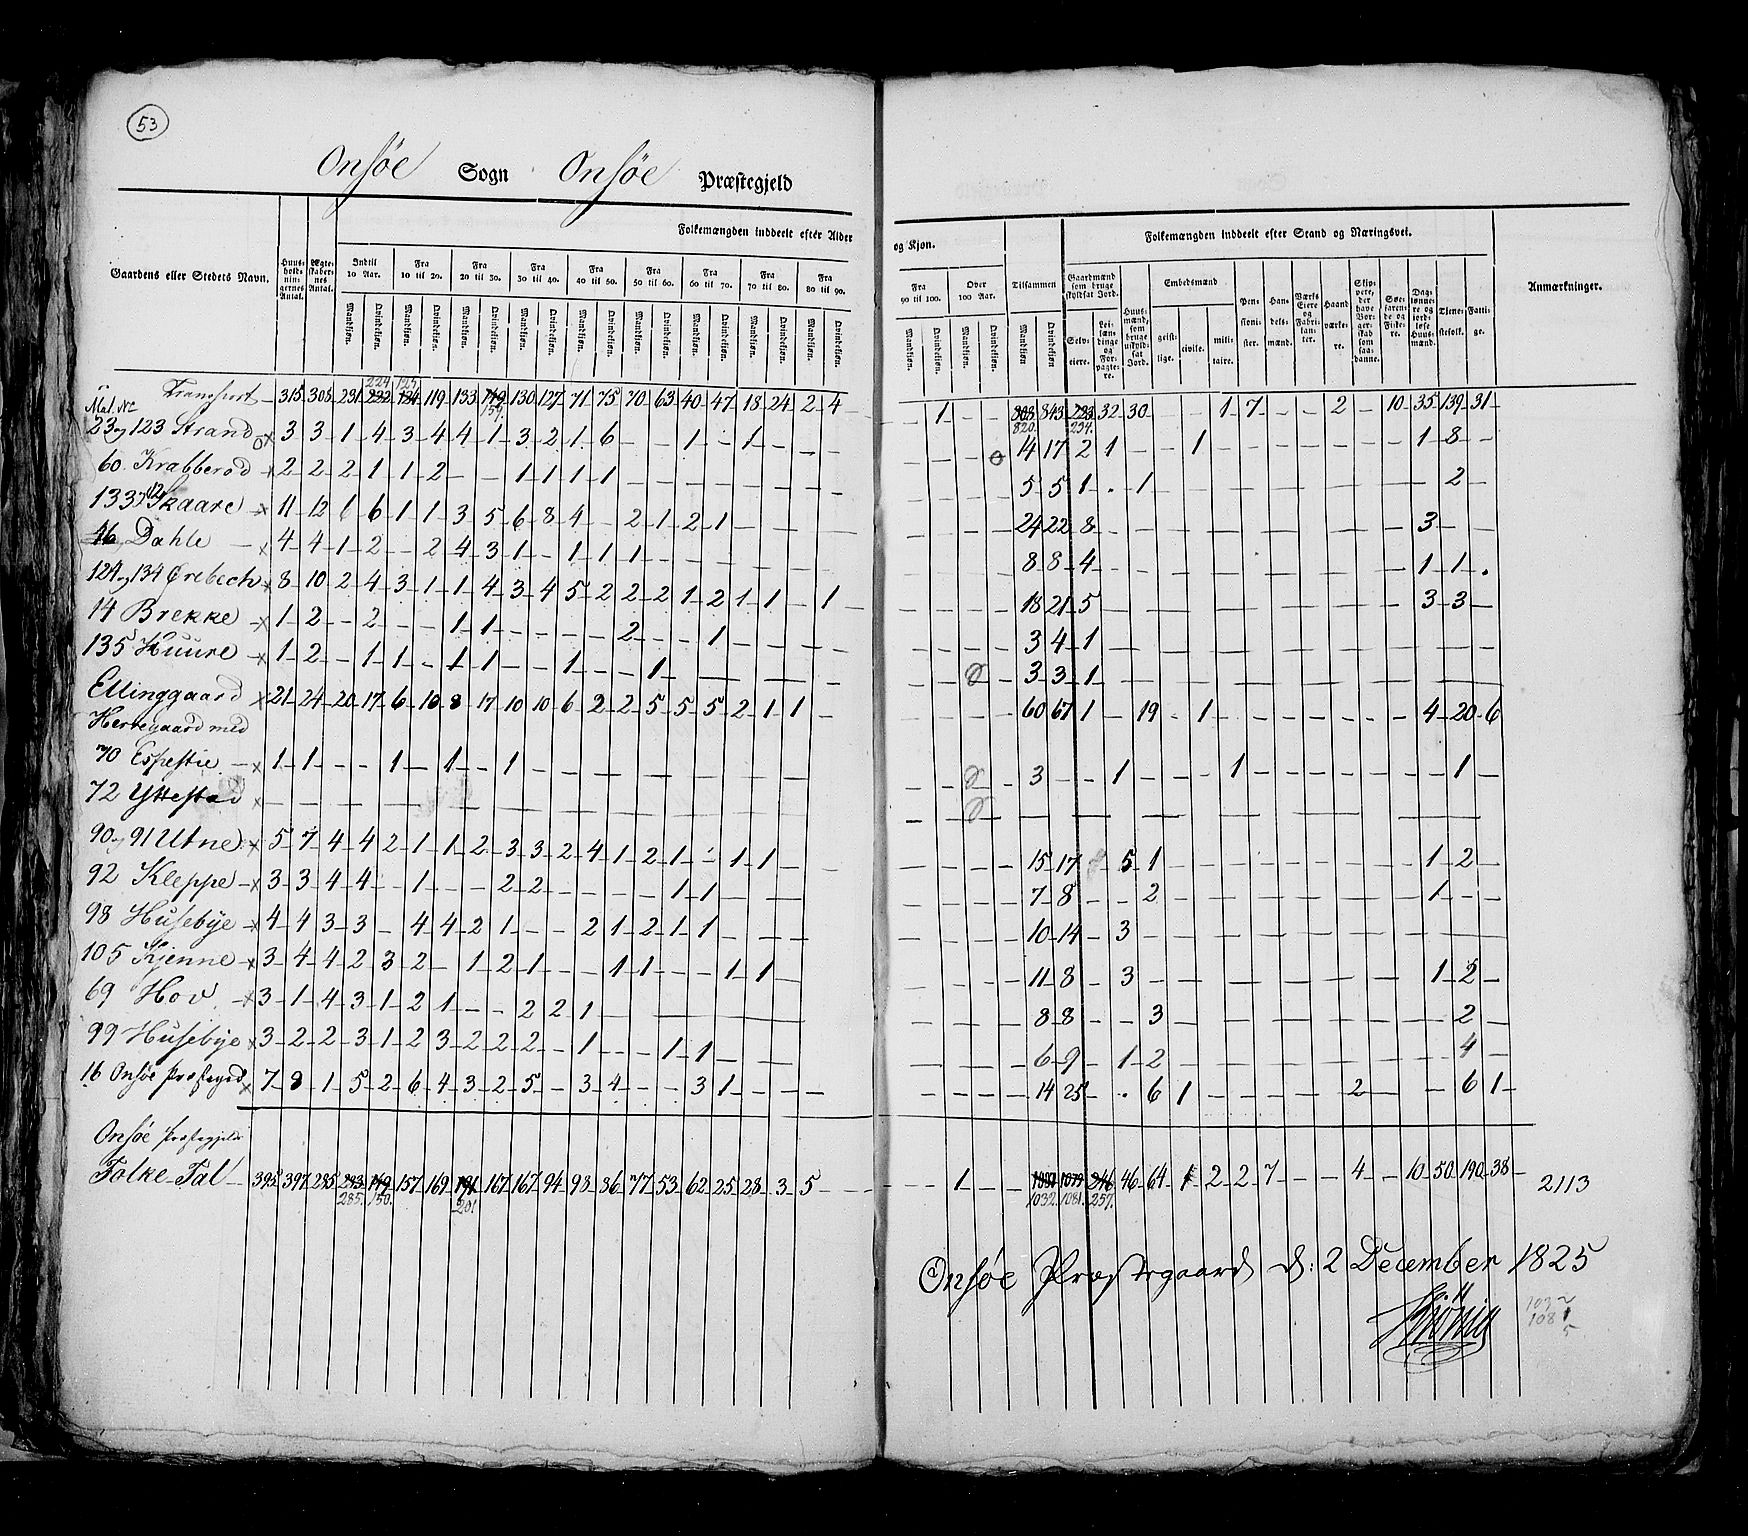 53
Onsøe Sogn Onsøe Præstegjeld
Folkemængden inddeelt efter Alder og Kjøn.
Folkemængden inddeelt efter Stand og Næringsvei.
Gaardens eller Stedets Navn.
Huusholdningernes Antal.
Ægteskabernes Antal.
Indtil 10 Aar.
Fra 10 til 20.
Fra 20 til 30.
Fra 30 til 40.
Fra 40 til 50.
Fra 50 til 60.
Fra 60 til 70.
Fra 70 til 80.
Fra 80 til 90.
Fra 90 til 100.
Over 100 Aar.
Tilsammen
Gaardmænd som bruge skyldsat Jord.
Selveiere.
Leilændinge og Forpagtere.
Huusmænd, som bruge uskyldsat Jord.
Embedsmænd
geistlige.
civile.
militaire.
Pensionister.
Handelsmænd.
Værks Eiere og Fabrikanter.
Haandværkere.
Skippere, der have Borgerskab som saadanne.
Søefarende og Fiskere.
Daglønnere og jordløse Huusmænd.
Tjenestefolk.
Fattige.
Anmærkninger.
Mandkiøn. Qvindekiøn.
Transport 315 305 231 232 224 134 125 119 133 149 159 130 127 71 75 70 63 40 47 18 24 2 4 1 808 820 843 223 234 32 30 1 7 2 10 35 139 31
Mat. No
23 og 123 Strand 3 3 1 4 3 4 4 1 3 2 1 6 1 1 14 17 2 1 1 1 8
60 Krabberød 2 2 2 1 1 2 1 1 1 1 5 5 1 1 2
133 og 12 Skaare 11 12 6 6 1 1 3 5 6 8 4 2 1 2 1 24 22 8 3
46 Dahle 4 4 1 2 2 4 3 1 1 1 1 8 8 4 1 1
124 og 134 Ørebech 8 10 2 4 3 1 1 4 3 4 5 2 2 2 1 2 1 1 1 18 21 5 3 3
14 Brekke 1 2 2 1 1 2 1 3 4 1
135 Huure 1 2 1 1 1 1 1 1 3 3 1
Ellinggaard 21 24 20 17 6 10 8 17 10 10 6 2 2 5 5 5 2 1 1 60 67 1 19 1 4 20 6
Herregaard med
70 Espestie 1 1 1 1 1 3 1 1 1
72 Yttestad
90 og 91 Utne 5 7 4 4 2 1 1 2 3 3 2 4 1 2 1 1 1 15 17 5 1 1 2
92 Kleppe 3 3 4 4 1 2 2 1 1 7 8 2 1
98 Husebye 4 4 3 3 4 4 2 1 2 1 2 1 1 10 14 3
105 Kjenne 3 4 4 2 3 2 1 2 1 1 1 1 1 11 8 3 1 2
69 Hov 3 1 4 3 1 2 1 2 2 1 8 8 3 2
99 Husebye 3 2 2 3 1 2 3 2 2 2 1 1 1 6 9 1 2 4
16 Onsøe Præstegrd 7 8 1 5 2 6 4 3 2 5 3 4 3 1 14 25 6 1 2 6 1
Onsøe Præstegjelds
Folke-Tal 395 397 285 293 285 149 150 157 169 191 201 167 167 94 98 86 77 53 62 25 28 3 5 1 1032 1079 1081 246 257 46 64 1 2 2 7 4 10 50 190 38 2113
Onsøe Præstegaard d: 2 December 1825
1032
1081
5